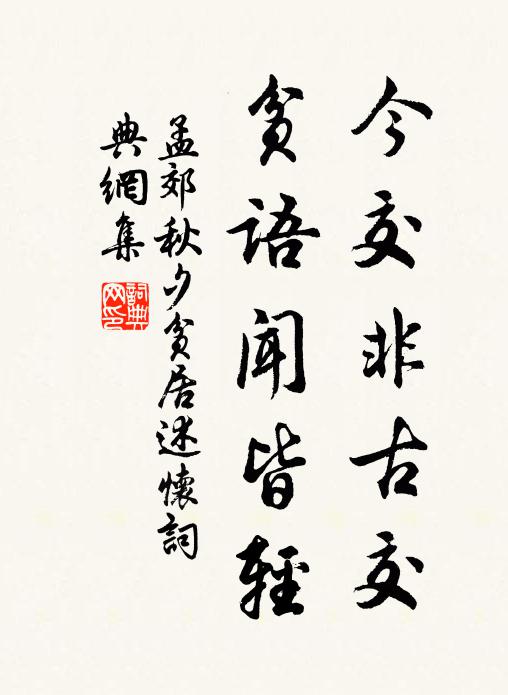 今交非古交
貧語聞皆輕
孟郊秋夕貧居述懷詞
典網集
詞典
网印